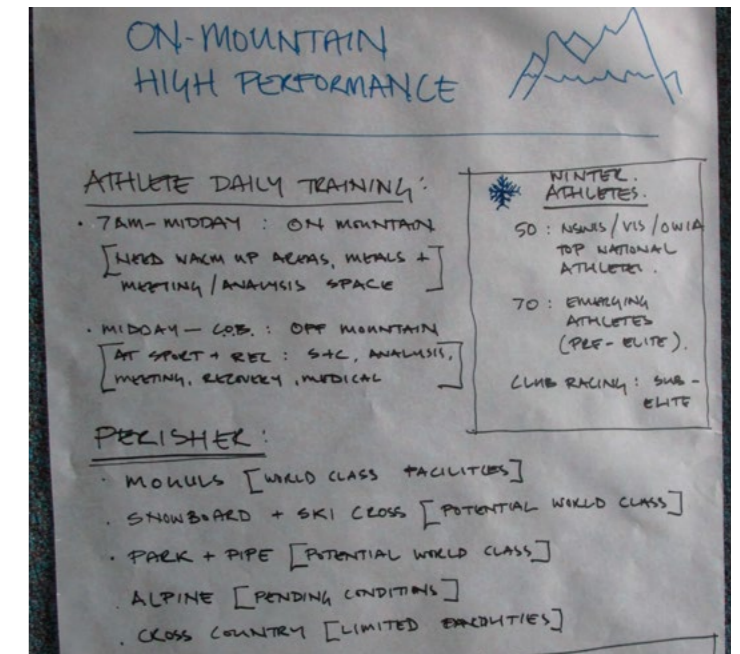 ON-MOUNTAIN
HIGH PERFORMANCE
ATHLETE DAILY TRAINING:
· 7AM-MIDDAY : ON MOUNTAIN
[NEED WARM UP AREAS, MEALS +
MEETING / ANALYSIS SPACE]
· MIDDAY - C.O.B. : OFF MOUNTAIN
[AT SPORT + REC : S+C, ANALYSIS,
MEETING, RECOVERY, MEDICAL]
WINTER
ATHLETES.
50 : NSWIS / VIS / OWIA
TOP NATIONAL
ATHLETES.
70 : EMERGING
ATHLETES
(PRE-ELITE).
CLUB RACING : SUB-
ELITE
PERISHER :
· MOGULS [WORLD CLASS FACILITIES]
· SNOWBOARD + SKI CROSS [POTENTIAL WORLD CLASS]
· PARK + PIPE [POTENTIAL WORLD CLASS]
· ALPINE [PENDING CONDITIONS]
· CROSS COUNTRY [LIMITED]